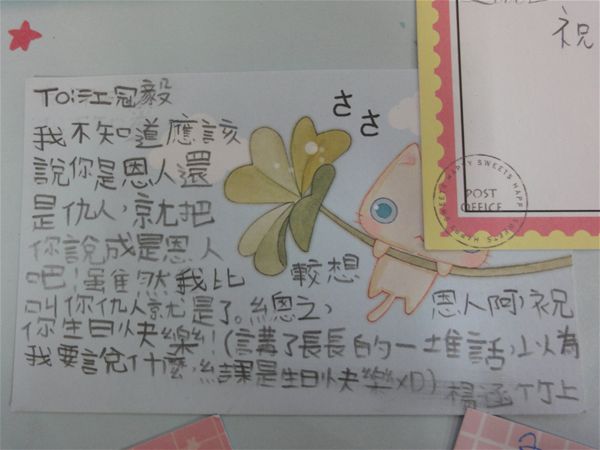 To:江冠毅
我不知道應該
說你是恩人還
是仇人,就把
你說成是恩人
吧!雖然我比較想
叫你仇人就是了。總之,恩人阿,祝
你生日快樂!(講了長長的一堆話,以為
我要說什麼,結課是生日快樂XD) 楊涵竹上
ささ
祝
POST
OFFICE
HAPPY SWEETS HAPPY SWEETS